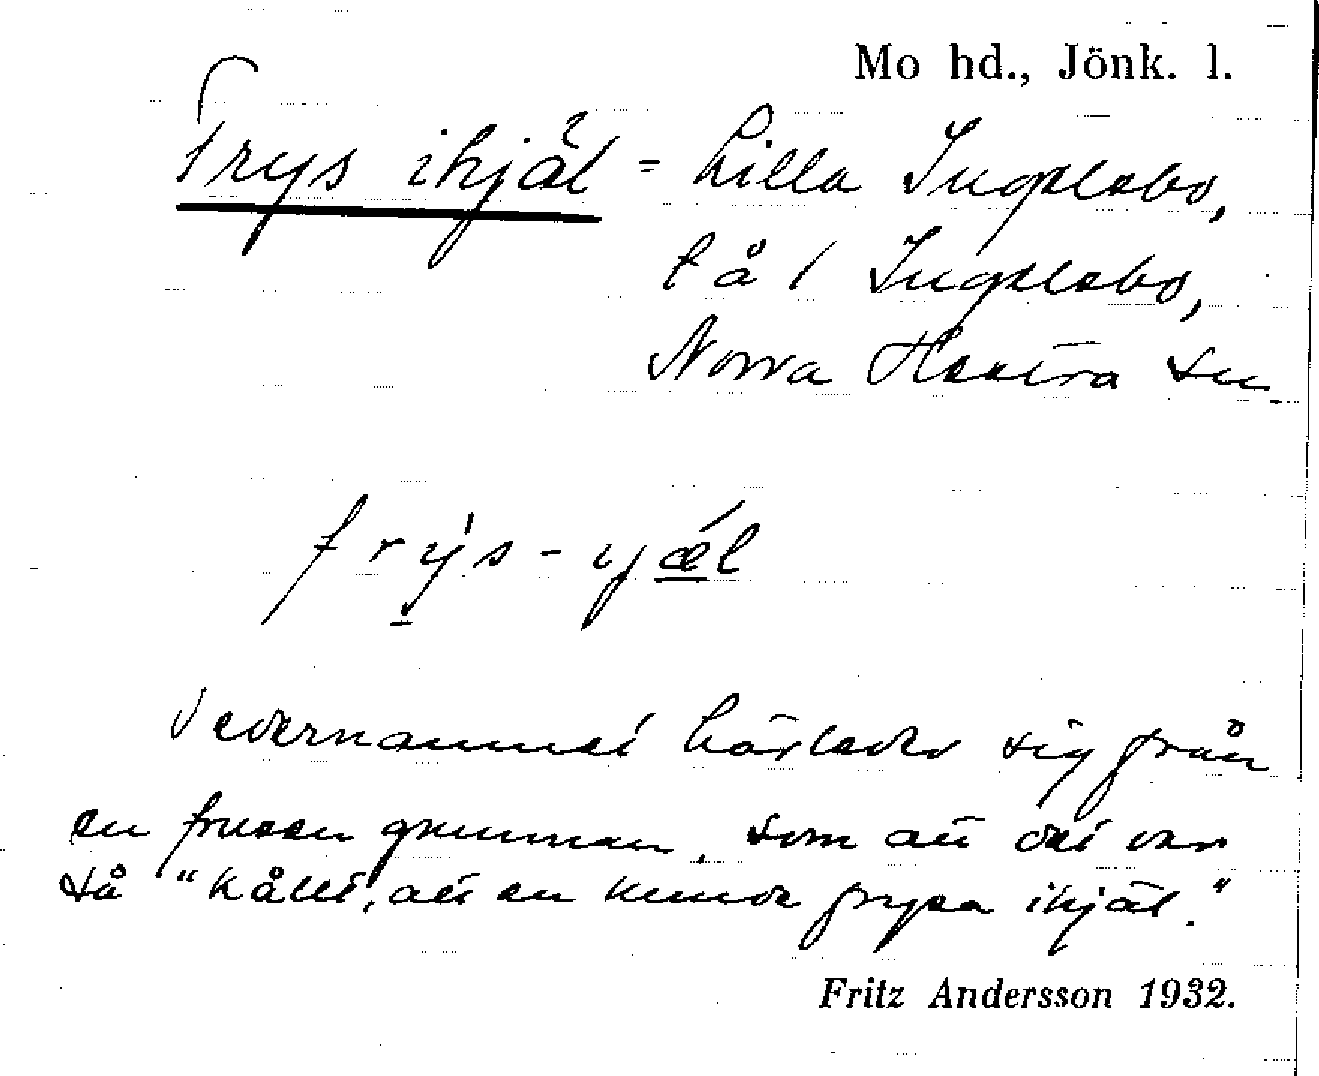 Mo hd., Jönk. l.
Frys ihjäl = Lilla Ingslabo,
t å 1 Ingslabo,
Norra Hestra sn
frýs-yǽl
Vedernamnet härleder sig från
en frusen grumman, som att det var
så "kållt, att en kunde frysa ihjäl."
Fritz Andersson 1932.